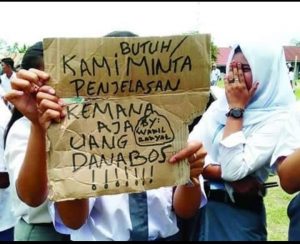 BUTUH/
KAMI MINTA
PENJELASAN
KEMANA
AJA
UANG
DANABOS
!!!!!!!
BY:
WAKIL
RAKYAT